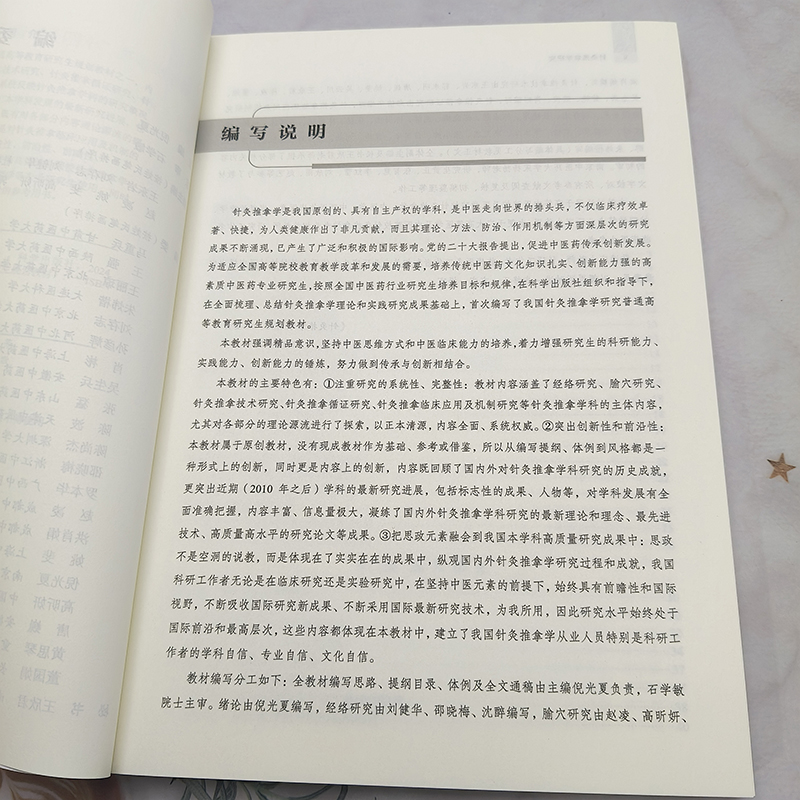 编写说明
针灸推拿学是我国原创的、具有自主产权的学科，是中医走向世界的排头兵，不仅临床疗效卓
著、快捷，为人类健康作出了非凡贡献，而且其理论、方法、防治、作用机制等方面深层次的研究
成果不断涌现，已产生了广泛和积极的国际影响。党的二十大报告提出，促进中医药传承创新发展。
为适应全国高等院校教育教学改革和发展的需要，培养传统中医药文化知识扎实、创新能力强的高
素质中医药专业研究生，按照全国中医药行业研究生培养目标和规律，在科学出版社组织和指导下，
在全面梳理、总结针灸推拿学理论和实践研究成果基础上，首次编写了我国针灸推拿学研究普通高
等教育研究生规划教材。
本教材强调精品意识，坚持中医思维方式和中医临床能力的培养，着力增强研究生的科研能力、
实践能力、创新能力的锤炼，努力做到传承与创新相结合。
本教材的主要特色有：①注重研究的系统性、完整性：教材内容涵盖了经络研究、腧穴研究、
针灸推拿技术研究、针灸推拿循证研究、针灸推拿临床应用及机制研究等针灸推拿学科的主体内容，
尤其对各部分的理论源流进行了探索，以正本清源，内容全面、系统权威。②突出创新性和前沿性：
本教材属于原创教材，没有现成教材作为基础、参考或借鉴，所以从编写提纲、体例到风格都是一
种形式上的创新，同时更是内容上的创新，内容既回顾了国内外对针灸推拿学科研究的历史成就，
更突出近期（2010 年之后）学科的最新研究进展，包括标志性的成果、人物等，对学科发展有全
面准确把握，内容丰富、信息量极大，凝练了国内外针灸推拿学科研究的最新理论和理念、最先进
技术、高质量高水平的研究论文等成果。③把思政元素融会到我国本学科高质量研究成果中：思政
不是空洞的说教，而是体现在了实实在在的成果中，纵观国内外针灸推拿学研究过程和成就，我国
科研工作者无论是在临床研究还是实验研究中，在坚持中医元素的前提下，始终具有前瞻性和国际
视野，不断吸收国际研究新成果、不断采用国际最新研究技术，为我所用，因此研究水平始终处于
国际前沿和最高层次，这些内容都体现在本教材中，建立了我国针灸推拿学从业人员特别是科研工
作者的学科自信、专业自信、文化自信。
教材编写分工如下：全教材编写思路、提纲目录、体例及全文通稿由主编倪光夏负责，石学敏
院士主审。绪论由倪光夏编写，经络研究由刘健华、邵晓梅、沈醉编写，腧穴研究由赵凌、高昕妍、